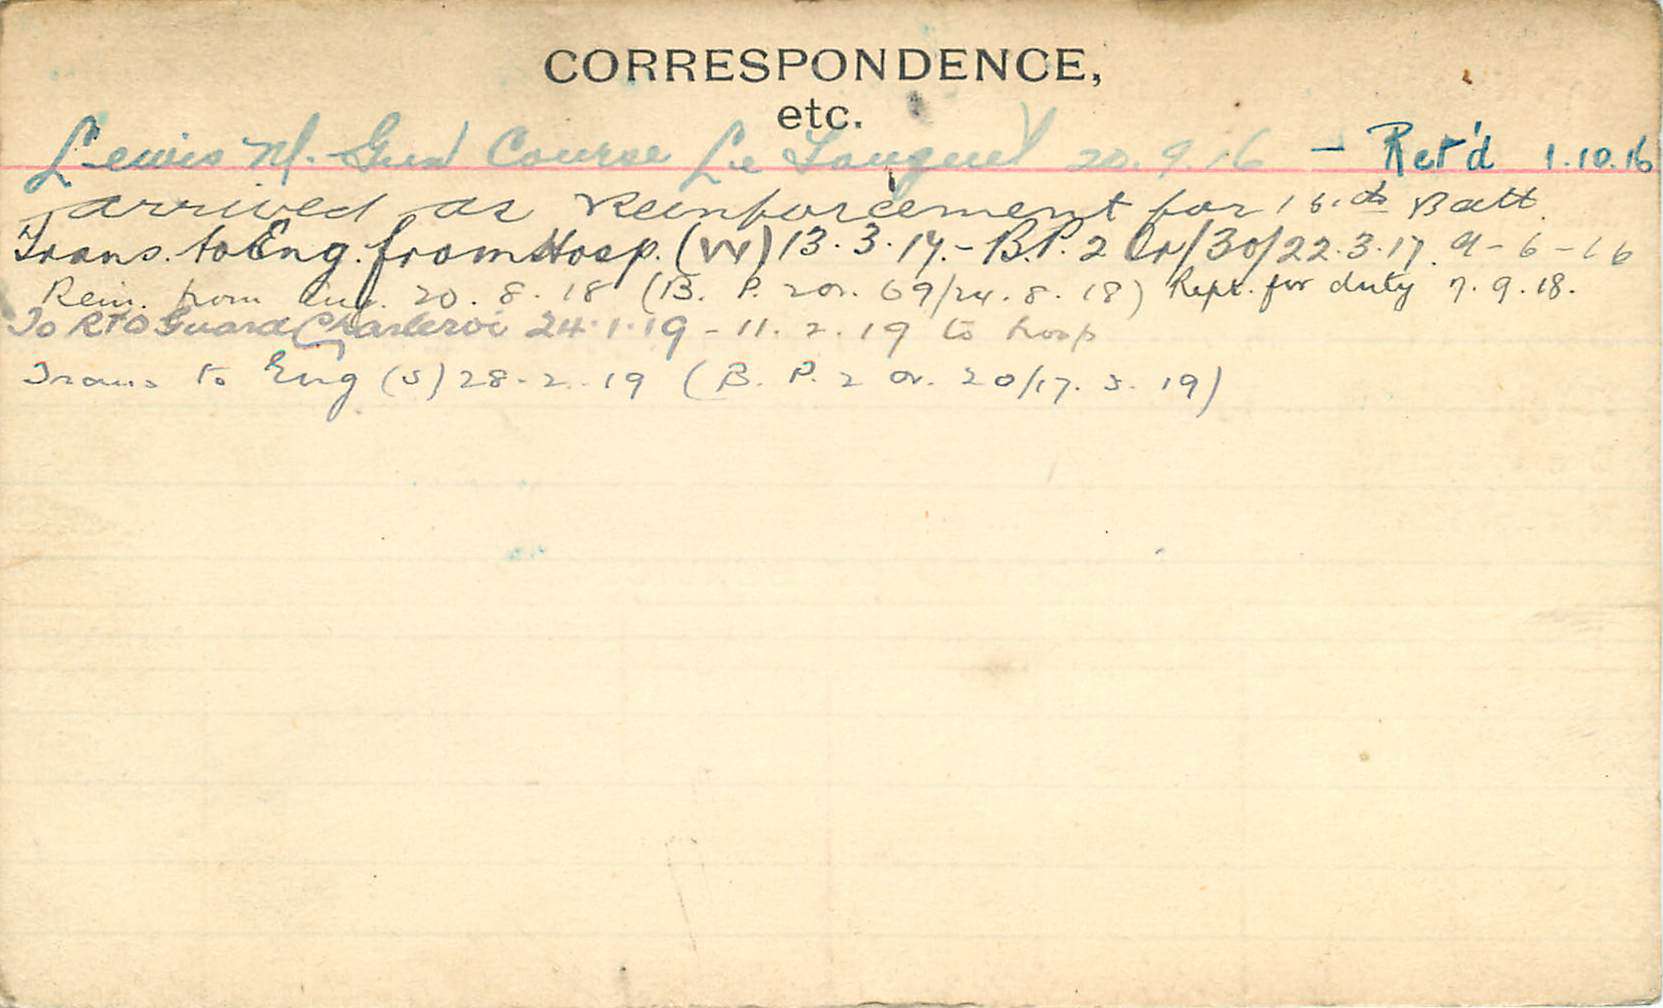 CORRESPONDENCE,
etc.
Lewis M. Gun Course Le Touquet 20.9.16 – Ret'd 1.10.16
arrived as Reinforcement for 16.th Batt.
Trans. to Eng. from Hosp. (W) 13.3.17. – B.P. 2 Or/30/22.3.17. 9-6-16
Rein. from Eng. 20.8.18 (B. P. 2 or. 69/24.8.18) Rept. for duty 7.9.18.
To RTO Guard Charleroi 24.1.19 – 11.2.19 to hosp
Trans to Eng (S) 28.2.19 (B. P. 2 or. 20/17.3.19)